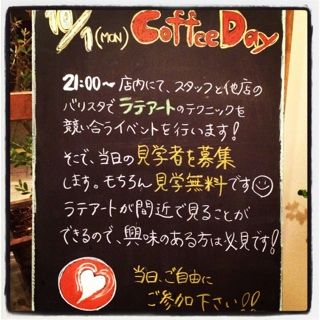 10/1(MON) Coffee Day
21:00〜 店内にて、スタッフと他店の
バリスタで ラテアートのテクニックを
競い合うイベントを行います!
そこで、当日の 見学者を募集
します。もちろん 見学無料です
ラテアートが間近で見ることが
できるので、興味のある方は必見です!
当日、ご自由に
ご参加下さい!!